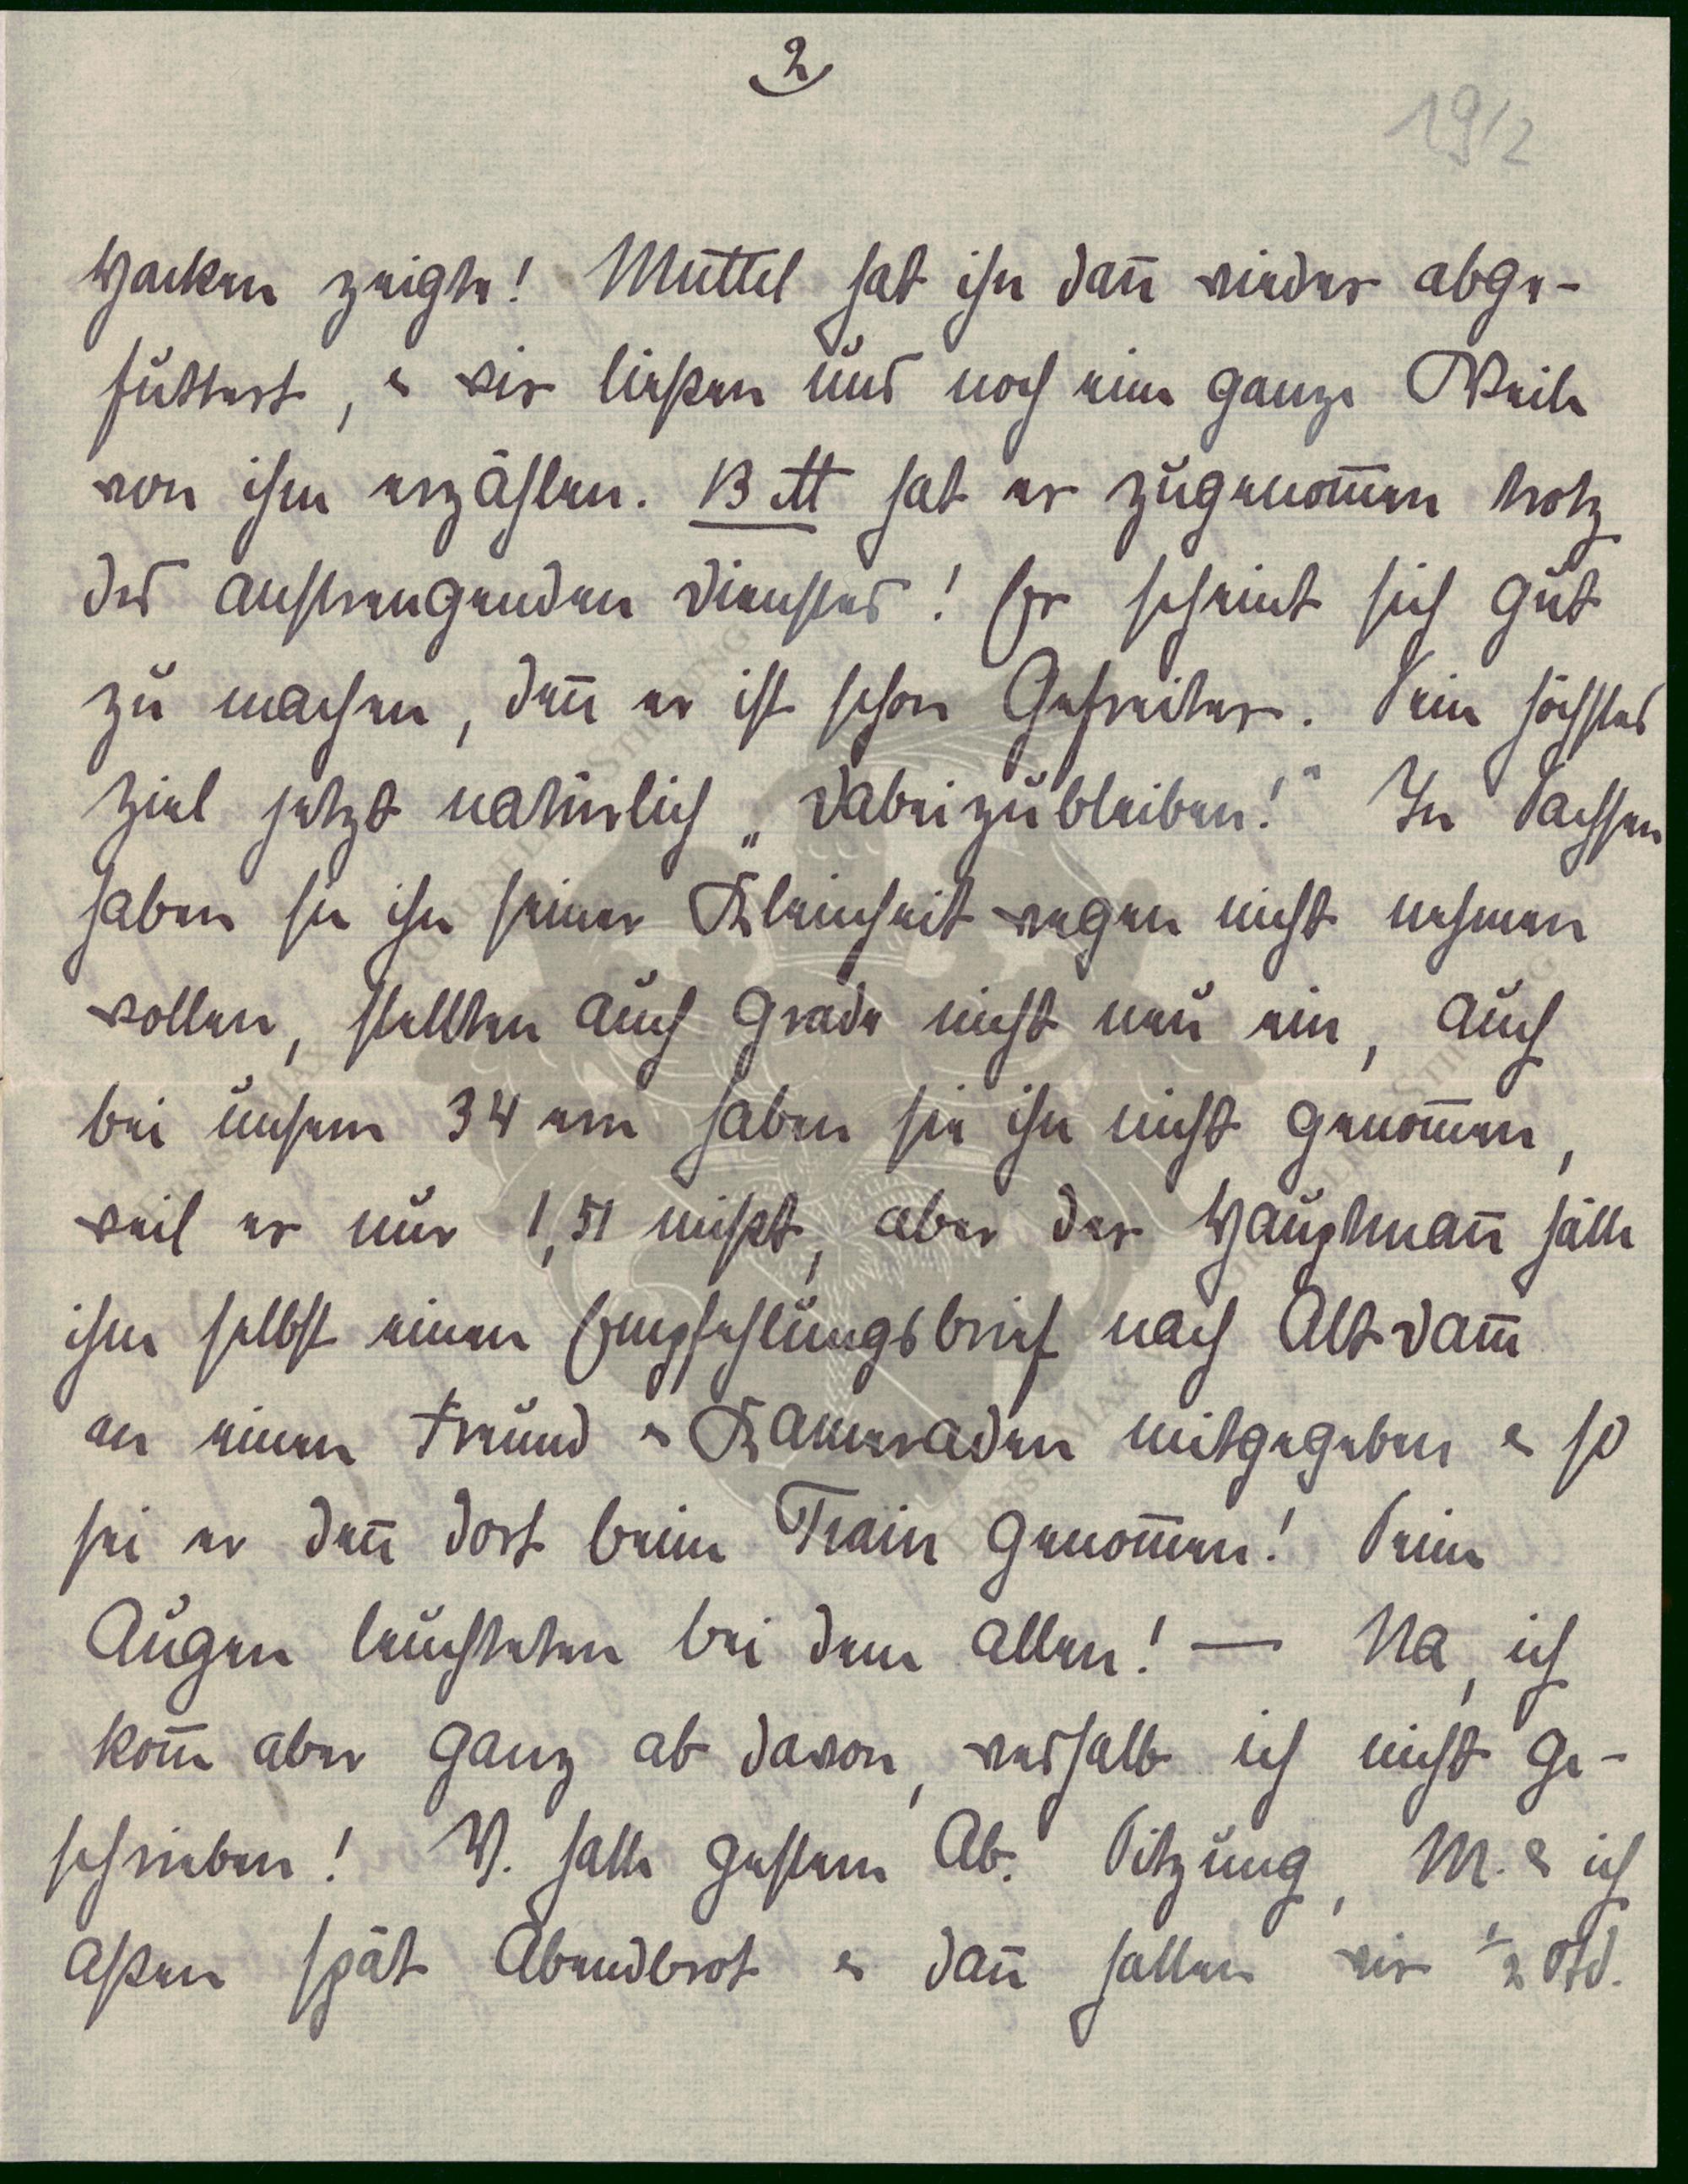 2
19/2
Hacken zeigte! Muttel hat ihn dann wieder abge-
füttert, & wir ließen uns noch eine ganze Weile
von ihm erzählen. 13 ℔ hat er zugenommen trotz
des anstrengenden Dienstes! Er scheint sich gut
zu machen, denn er ist schon Gefreiter. Sein höchstes
Ziel jetzt natürlich „dabeizubleiben!“ In Sachsen
haben sie ihn seiner Kleinheit wegen nicht nehmen
wollen, stellten auch grade nicht neu ein, auch
bei unsern 34ern haben sie ihn nicht genommen,
weil er nur 1,51 mißt, aber der Hauptmann hätte
ihm selbst einen Empfehlungsbrief nach Altdamm
an einen Freund & Kameraden mitgegeben & so
sei er denn dort beim Train genommen! Seine
Augen leuchteten bei dem allen! — Na, ich
komm aber ganz ab davon, weshalb ich nicht ge-
schrieben! V. hatte gestern Ab. Sitzung, M. & ich
aßen spät Abendbrot & dann hatten wir ½ Std.